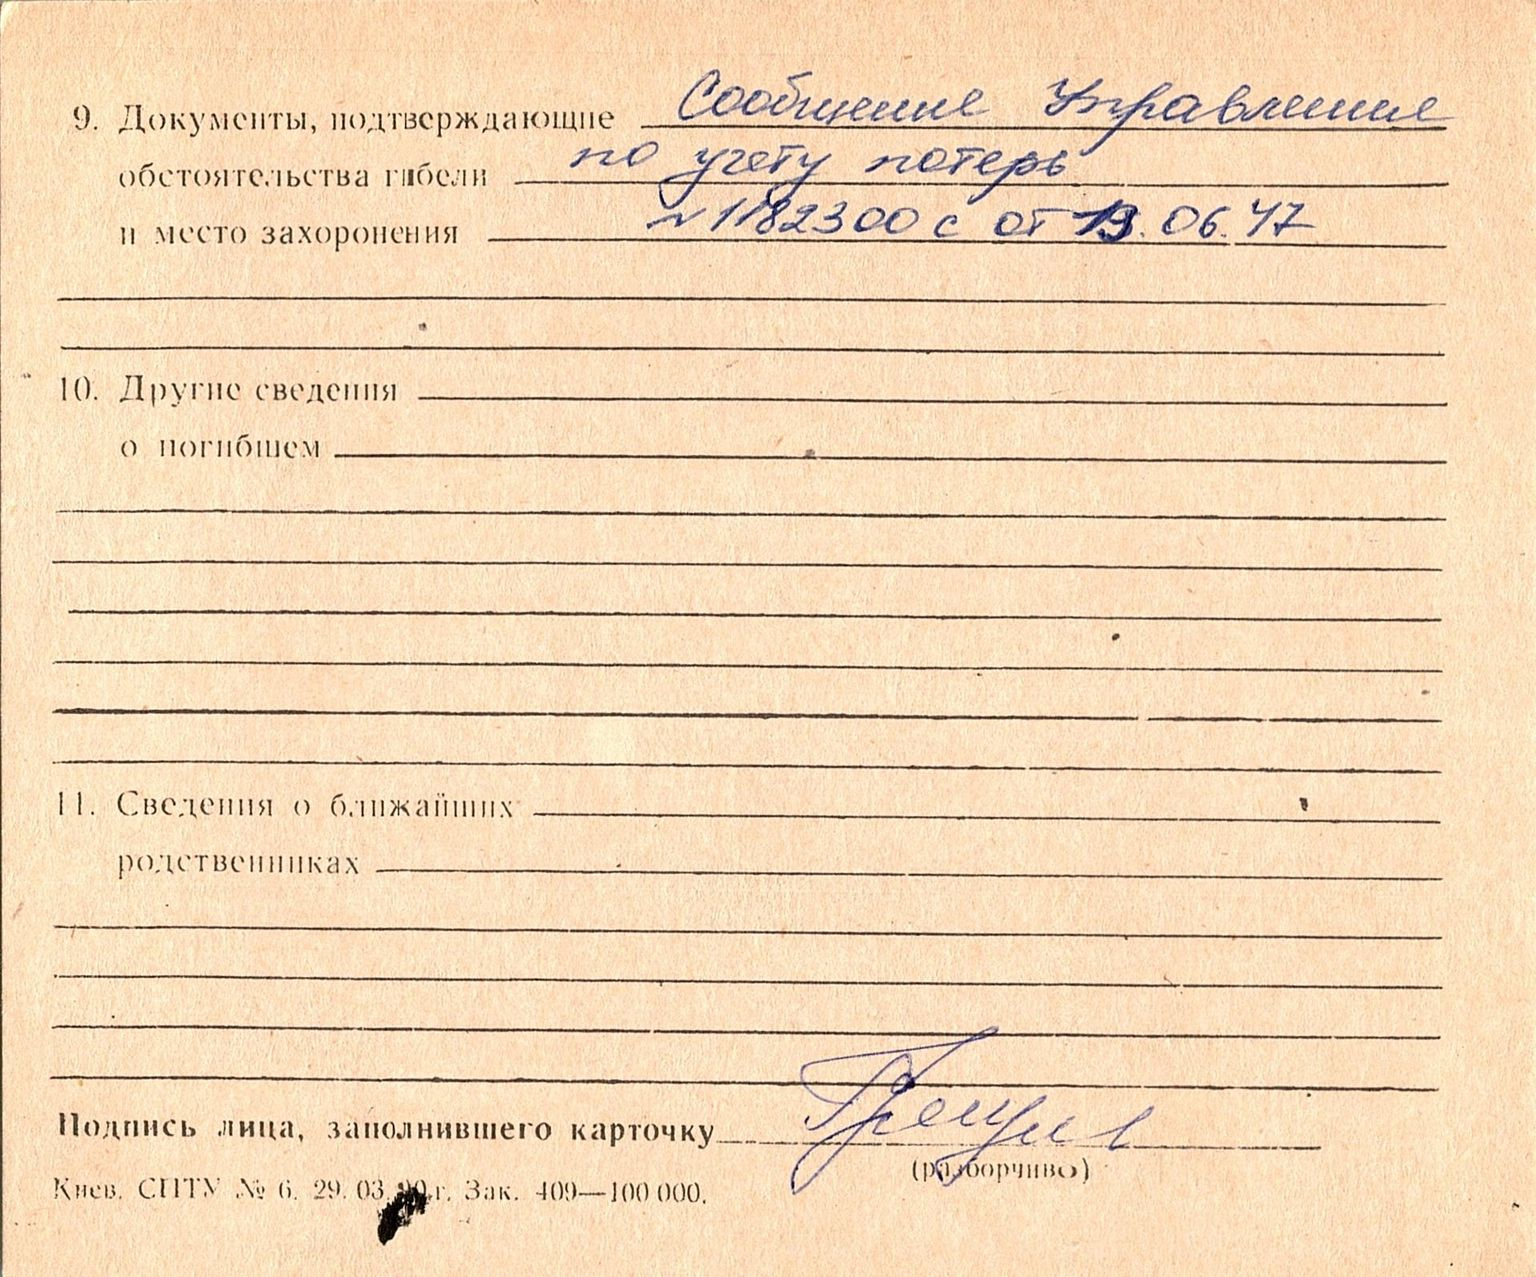 9. Документы, подтверждающие Сообщение Управления
обстоятельства гибели по учету потерь
и место захоронения №1182300 с от 19.06.47
10. Другие сведения
о погибшем
11. Сведения о ближайших
родственниках
Подпись лица, заполнившего карточку
(разборчиво)
Киев. СПТУ № 6. 29. 03. 90 г. Зак. 409—100 000.